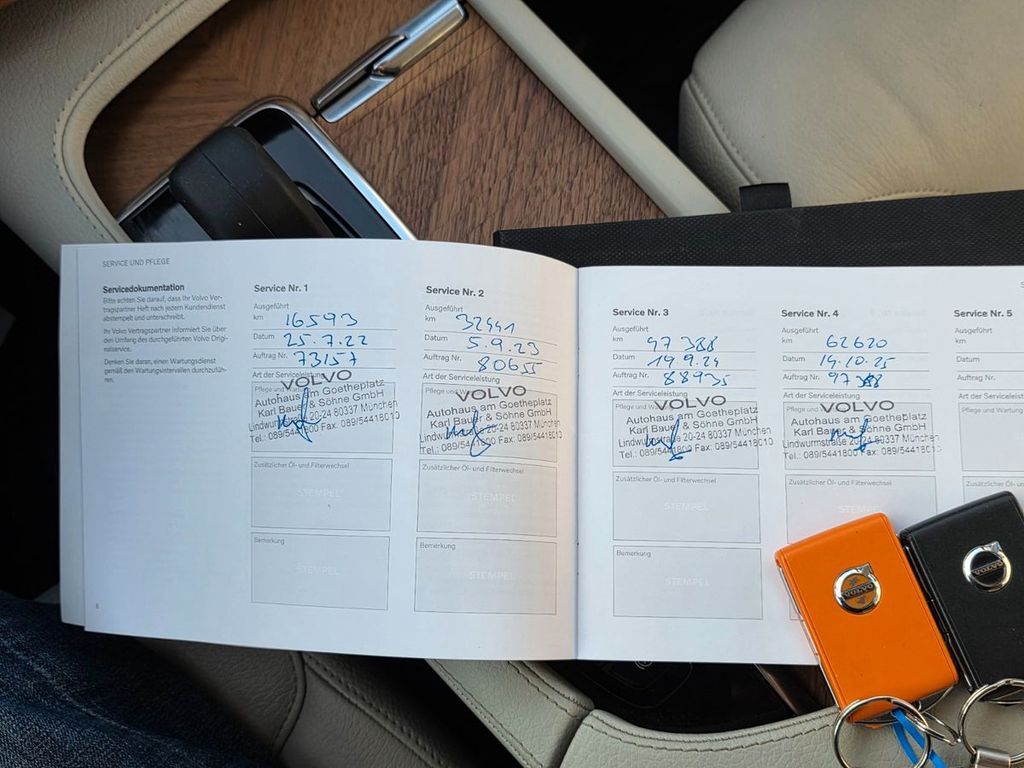 SERVICE UND PFLEGE
Servicedokumentation
Bitte achten Sie darauf, dass Ihr Volvo Ver-
tragspartner Heft nach jedem Kundendienst
abstempelt und unterschreibt.
Ihr Volvo Vertragspartner informiert Sie über
den Umfang des durchgeführten Volvo Origi-
nalservice.
Denken Sie daran, einen Wartungsdienst
gemäß den Wartungsintervallen durchzufüh-
ren.
8
Service Nr. 1
Ausgeführt
km 16593
Datum 25.7.22
Auftrag Nr. 73157
Art der Serviceleistung
Pflege und
VOLVO
Autohaus am Goetheplatz
Karl Bauer & Söhne GmbH
Lindwurmstraße 20-24 80337 München
Tel.: 089/5441800 Fax: 089/54418010
Zusätzlicher Öl- und Filterwechsel
STEMPEL
Bemerkung
STEMPEL
Service Nr. 2
Ausgeführt
km 32441
Datum 5.9.23
Auftrag Nr. 80655
Art der Serviceleistung
Pflege und
VOLVO
Autohaus am Goetheplatz
Karl Bauer & Söhne GmbH
Lindwurmstraße 20-24 80337 München
Tel.: 089/5441800 Fax: 089/54418010
Zusätzlicher Öl- und Filterwechsel
STEMPEL
Bemerkung
STEMPEL
Service Nr. 3
Ausgeführt
km 47388
Datum 19.9.24
Auftrag Nr. 88935
Art der Serviceleistung
Pflege und
VOLVO
Autohaus am Goetheplatz
Karl Bauer & Söhne GmbH
Lindwurmstraße 20-24 80337 München
Tel.: 089/5441800 Fax: 089/54418010
Zusätzlicher Öl- und Filterwechsel
STEMPEL
Bemerkung
STEMPEL
Service Nr. 4
Ausgeführt
km 62620
Datum 14.10.25
Auftrag Nr.
Art der Serviceleistung
Pflege und
VOLVO
Autohaus am Goetheplatz
Karl Bauer & Söhne GmbH
Lindwurmstraße 20-24 80337 München
Tel.: 089/5441800 Fax: 089/54418010
Zusätzlicher Öl- und Filterwechsel
STEMPEL
Service Nr. 5
Ausgeführt
km
Datum
Auftrag Nr.
Art der Serviceleistung
Pflege und Wartung
Zusätzlicher Öl-
VOLVO
VOLVO